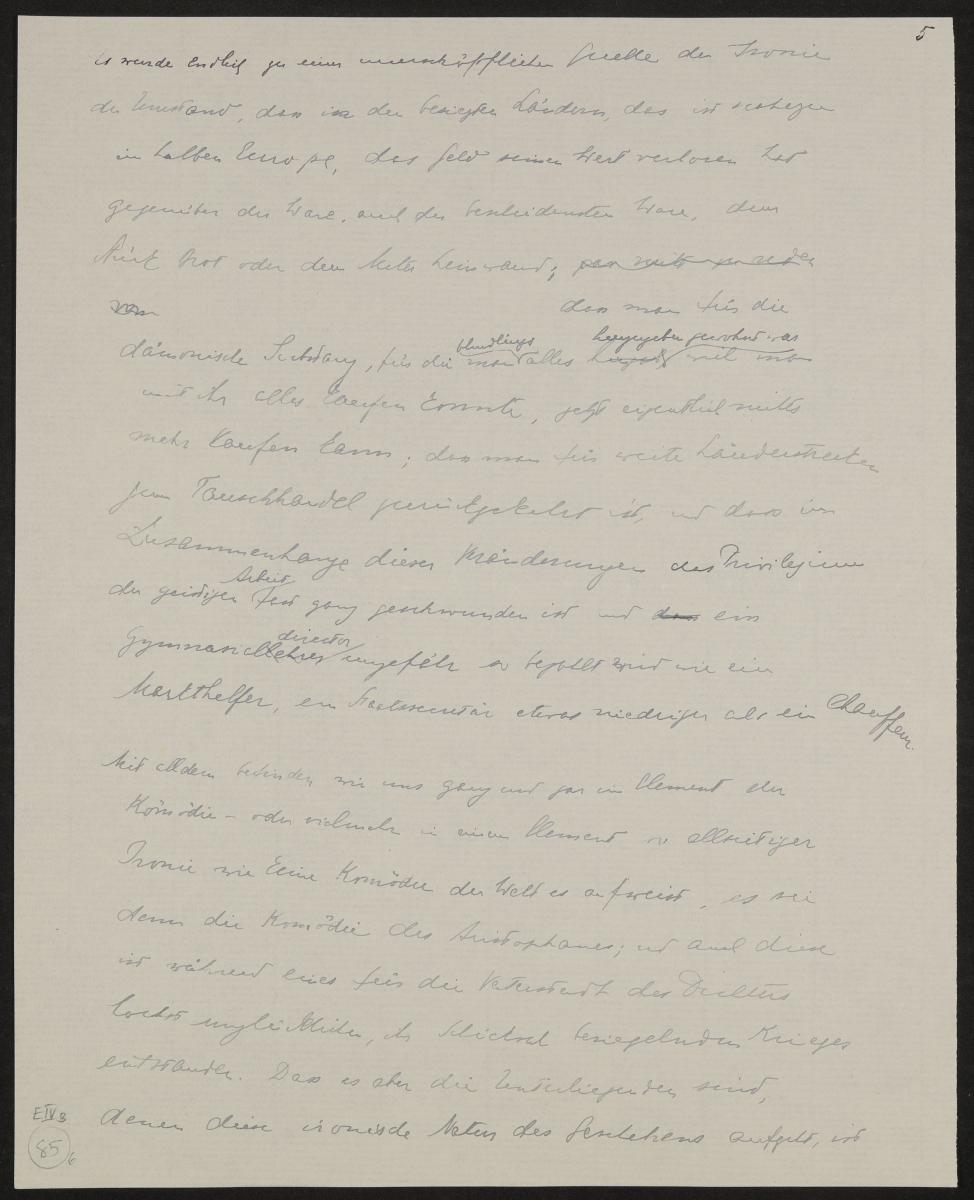 5
Es wurde endlich zu einer unerschöpflichen Quelle der Ironie
der Umstand, dass in den besiegten Ländern, das ist nahezu
im halben Europa, das Geld seinen Wert verloren hat
gegenüber der Ware, auch der bescheidensten Ware, dem
Stück Brot oder dem Meter Leinwand;
dass man für die
blindlings hergegeben gewohnt war
dämonische Substanz, für die man alles weil man
mit ihr alles kaufen konnte, jetzt eigentlich nichts
mehr kaufen kann; dass man für weite Länderstrecken
zum Tauschhandel zurückgekehrt ist, und dass im
Zusammenhange dieser Veränderungen das Privilegium
Arbeit
der geistigen fast ganz geschwunden ist und dass ein
director
Gymnasiallehrer ungefähr so bezahlt wird wie ein
Markthelfer, ein Staatssecretär etwas niedriger als ein Chauffeur.
Mit alldem befinden wir uns ganz und gar im Element der
Komödie – oder vielmehr in einem Element so allseitiger
Ironie wie keine Komödie der Welt es aufweist, es sei
denn die Komödie des Aristophanes; und auch diese
ist während eines für die Vaterstadt des Dichters
höchst unglücklichen, ihr Schicksal besiegelnden Krieges
entstanden. Dass es aber die Unterliegenden sind,
denen diese ironische Natur des Geschehens aufgeht, ist
E IV B
85
6